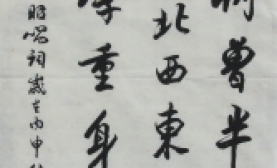 曾半
北西東
重身
昭唱詞歲在丙申